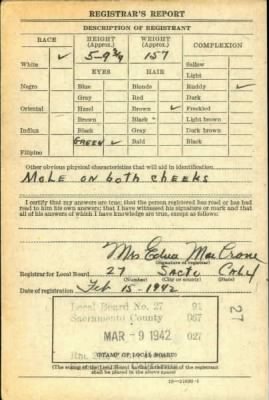 REGISTRAR'S REPORT
DESCRIPTION OF REGISTRANT
RACE HEIGHT (Approx.) WEIGHT (Approx.) COMPLEXION
✓ 5-9 3/4 157
White Sallow
EYES HAIR Light
Negro Blue Blonde Ruddy ✓
Gray Red Dark
Oriental Hazel Brown ✓ Freckled
Brown Black Light brown
Indian Black Gray Dark brown
GREEN ✓ Bald Black
Filipino
Other obvious physical characteristics that will aid in identification
MOLE on both cheeks
I certify that my answers are true; that the person registered has read or has had
read to him his own answers; that I have witnessed his signature or mark and that
all of his answers of which I have knowledge are true, except as follows:
Mrs Edna Mae Crone
(Signature of registrar)
Registrar for Local Board 27 Sacto Calif
(Number) (City or county) (State)
Date of registration Feb 15-1942
Local Board No. 27 92
Sacramento County 067
MAR - 9 1942 027
27
(STAMP OF LOCAL BOARD)
(The stamp of the Local Board having jurisdiction of the registrant
shall be placed in the above space)